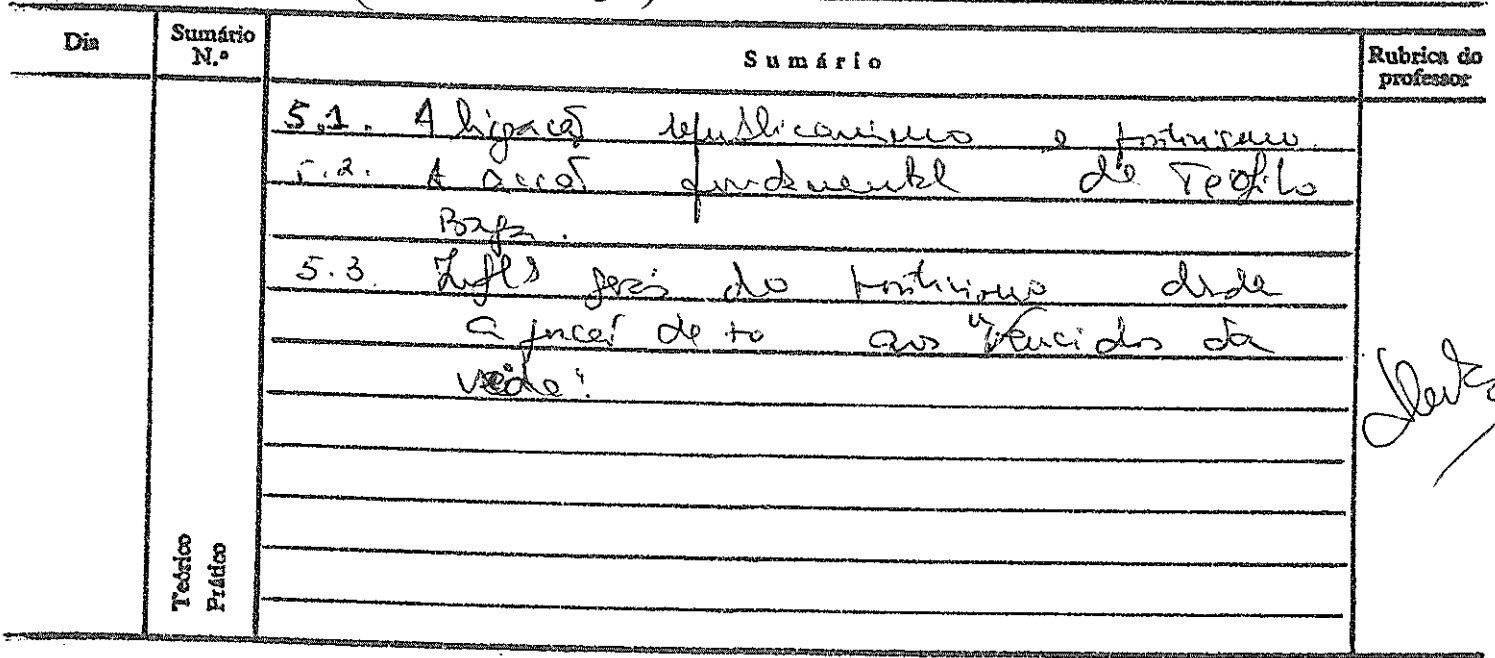 Dia
Sumário N.º
Sumário
Rubrica do professor
5.1. A ligação republicanismo e positivismo.
5.2. A acção fundamental de Teófilo
Braga.
5.3. gerais do positivismo desde
a geração de 70 aos "Vencidos da
vida".
Teórico
Prático